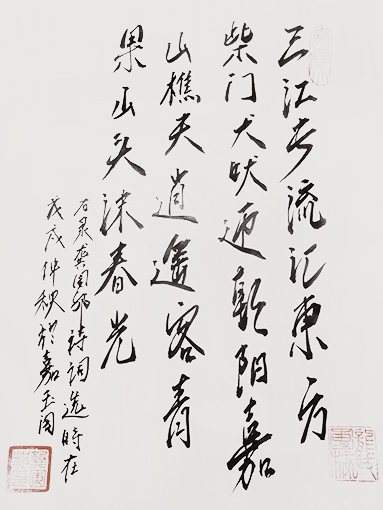 三江流汇东方
柴门犬吠迎朝阳嘉
山樵夫逍遥客青
果山头沐春光
石泉龚国诗词选时在
戊戌仲秋於嘉玉阁